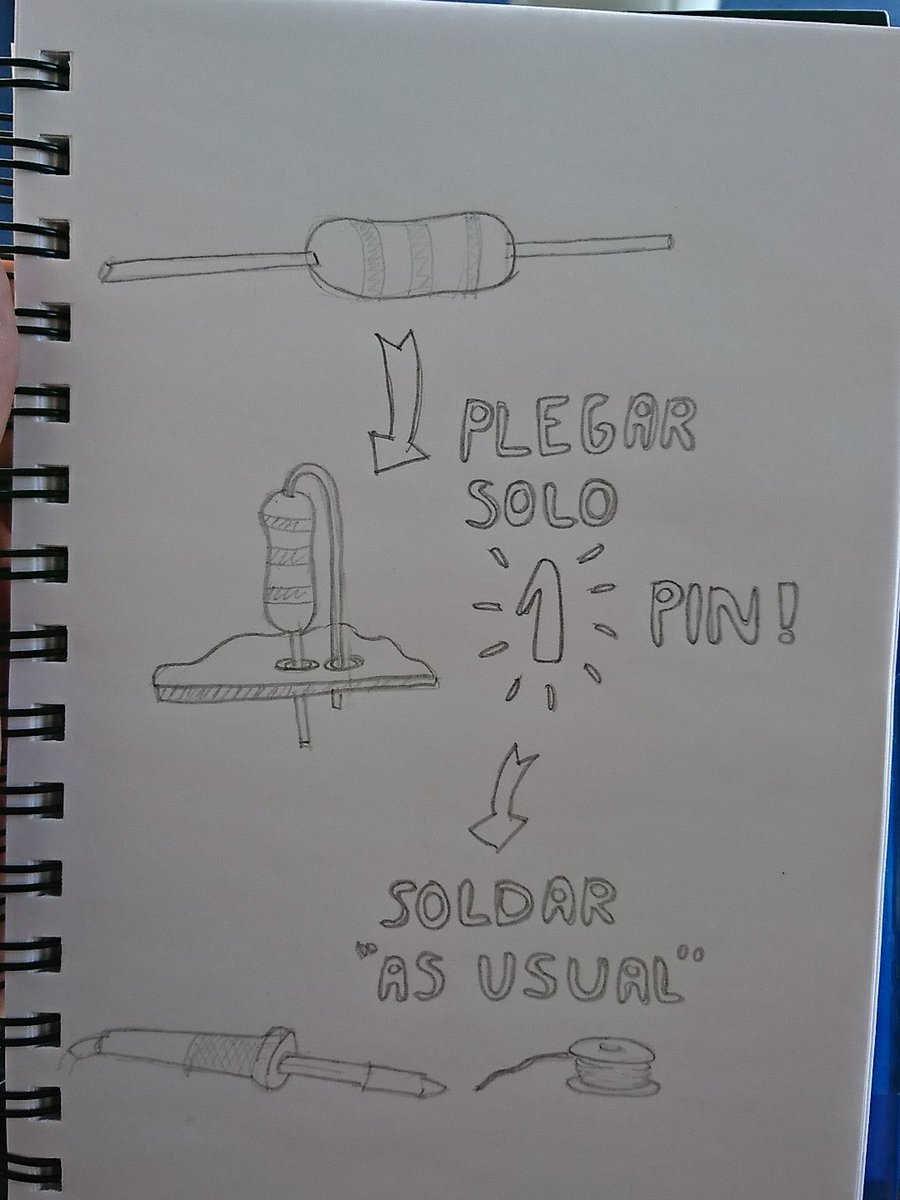 PLEGAR
SOLO
1 PIN!
SOLDAR
"AS USUAL"